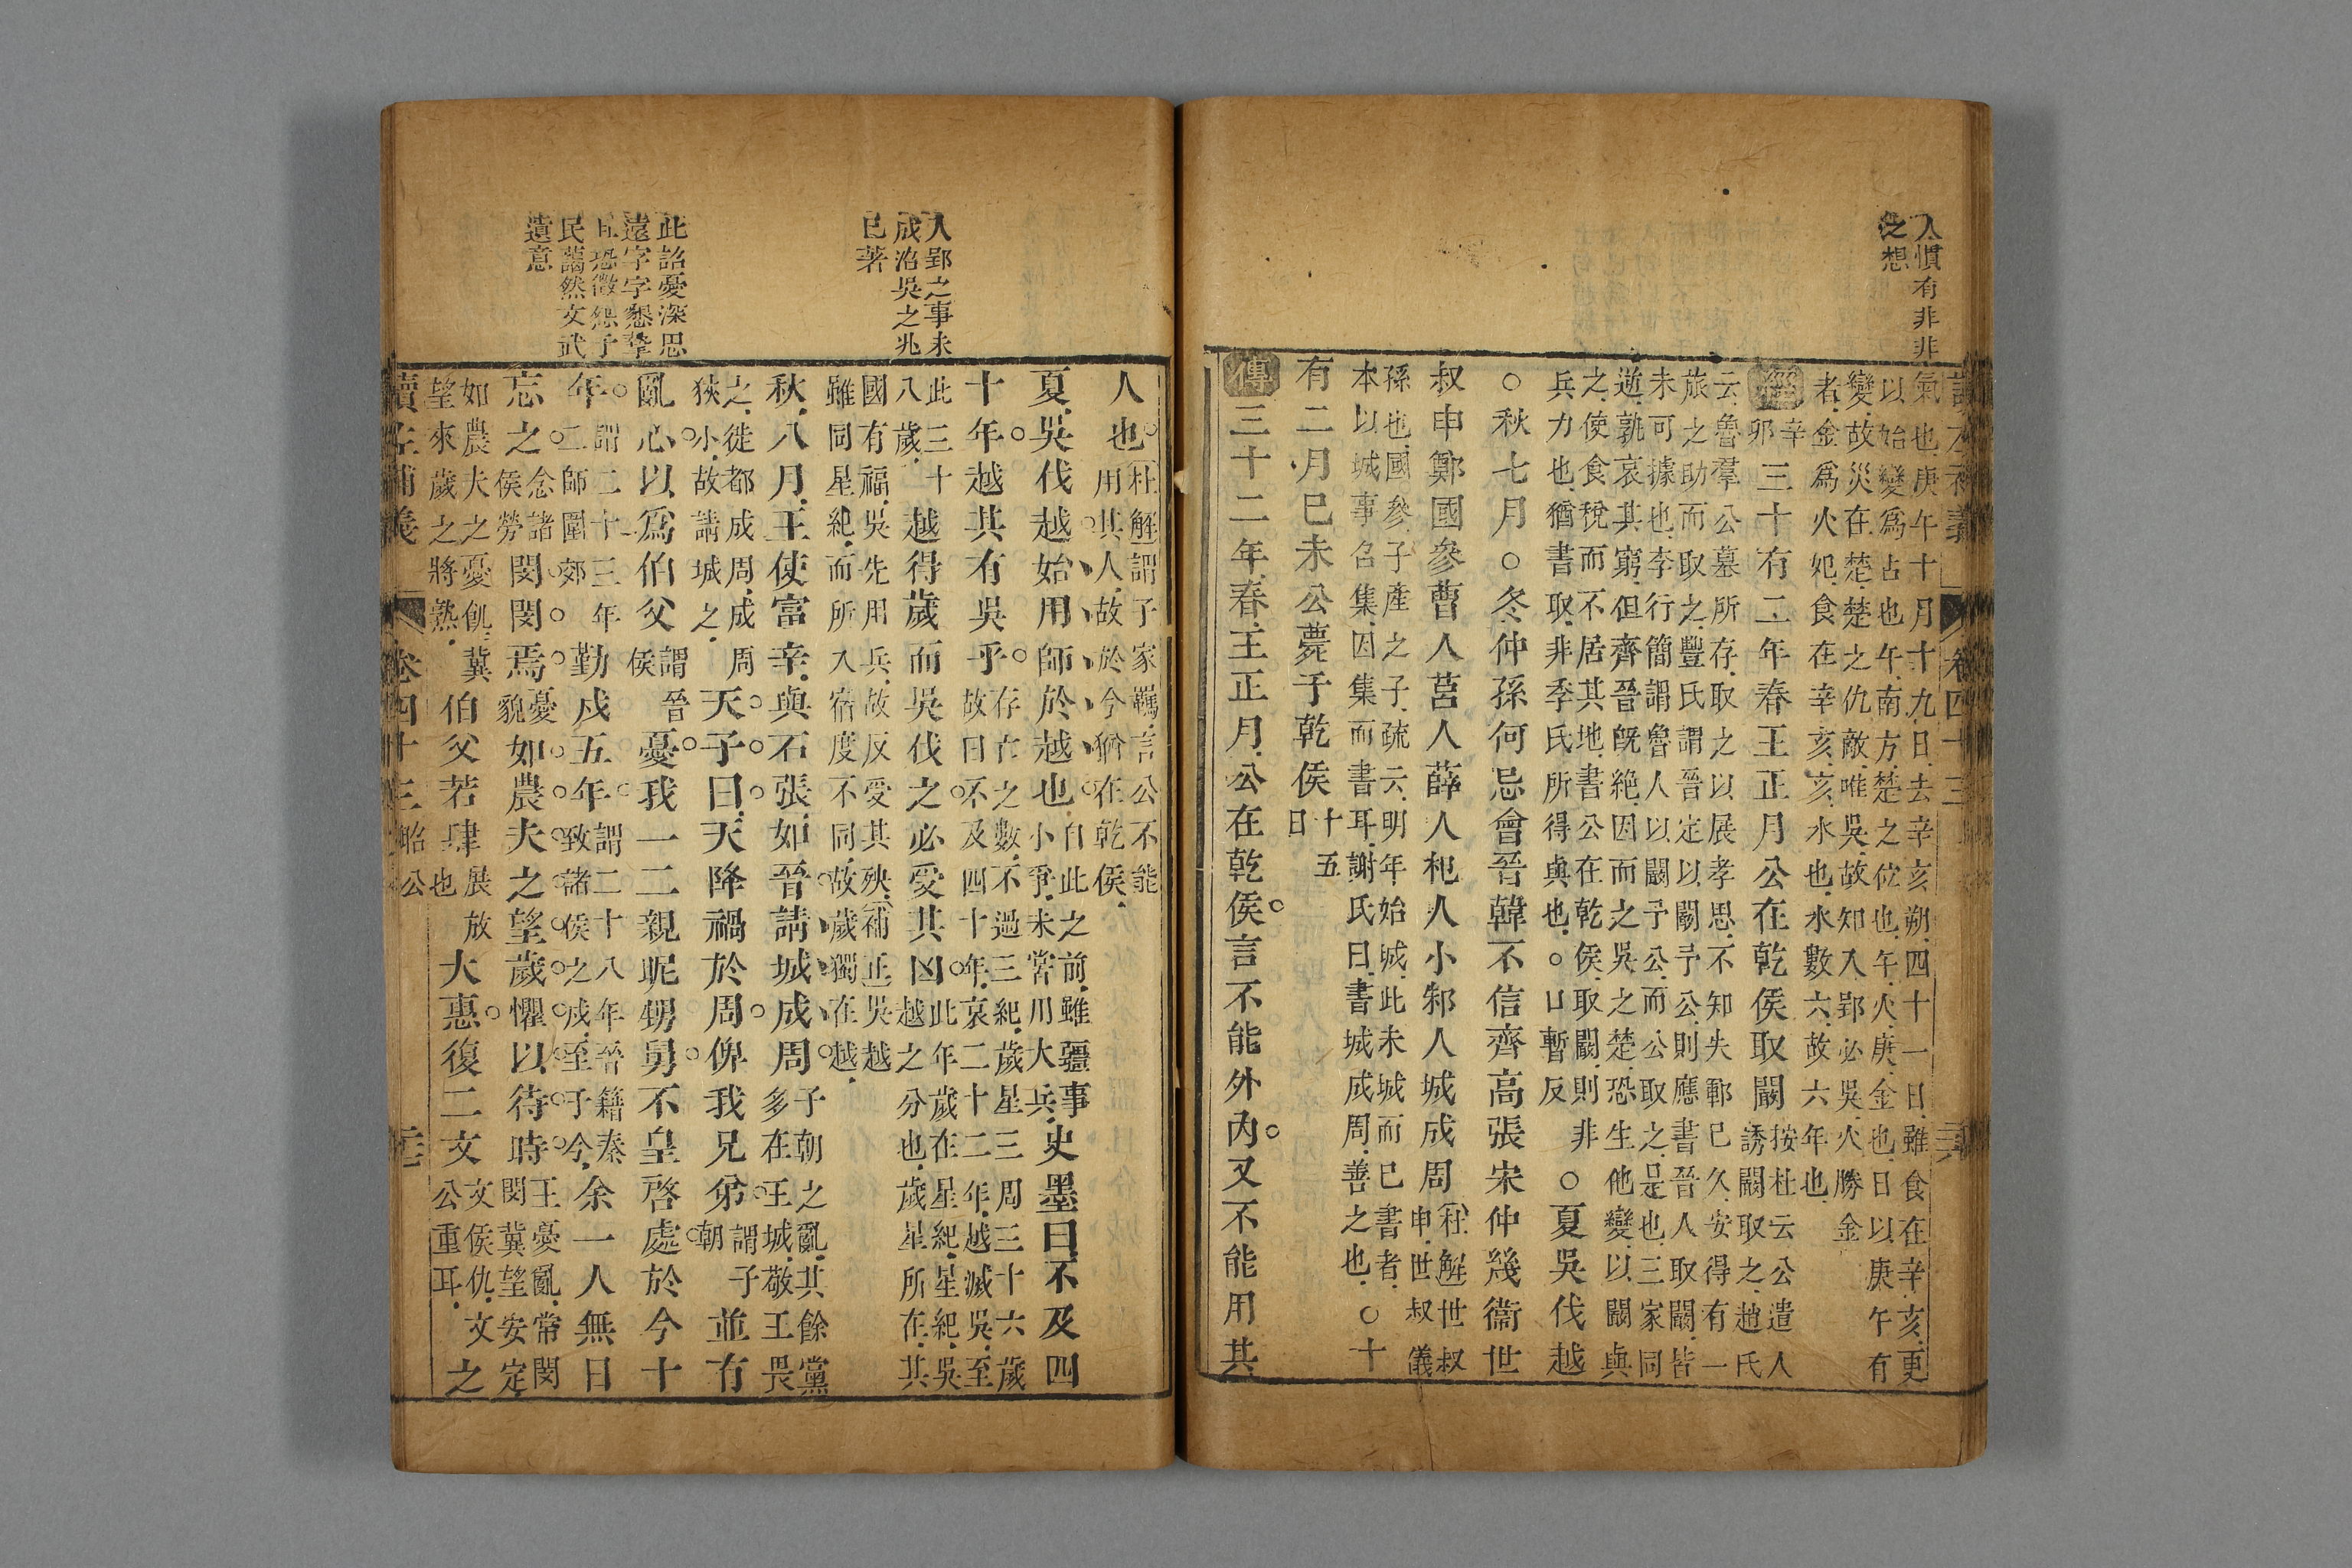 人慣有非非
之想
讀左補義 卷四十三
氣也庚午十月十九日去辛亥朔四十一日雖食在辛亥更
以始變爲占也午南方楚之位也午火庚金也日以庚午有
變故災在楚楚之仇敵唯吳故知入郢必吳火勝金
者金爲火妃食在辛亥亥水也水數六故六年也
經辛卯三十有二年春王正月公在乾侯取闞按杜云公遣人誘闞取之趙氏
云魯羣公墓所存取之以展孝思不知失鄆已久安得有一
旅之助而取之豐氏謂晉定以闞予公則應書晉人取闞皆
未可據也李行簡謂魯人以闞予公而公取之是也三家同
逆孰哀其窮但齊晉旣絕因而之吳之楚恐生他變以闞與
之使食稅而不居其地書公在乾侯取闞則非
兵力也猶書取非季氏所得與也○口暫反○夏吳伐越
○秋七月○冬仲孫何忌會晉韓不信齊高張宋仲幾衞世
叔申鄭國參曹人莒人薛人杞人小邾人城成周杜解世叔申世叔儀
孫也國參子產之子疏云明年始城此未城而已書者
本以城事召集因集而書耳謝氏曰書城成周善之也○十
有二月已未公薨于乾侯十五日
傳三十二年春王正月公在乾侯言不能外內又不能用其
入郢之事未
成沼吳之兆
已著
此詔憂深思
遠字字懇摯
且恐微怨于
民藹然文武
遺意
人也杜解謂子家羈言公不能用其人故於今猶在乾侯
夏吳伐越始用師於越也自此之前雖疆事小爭未嘗用大兵史墨曰不及四
十年越其有吳乎存亡之數不過三紀歲星三周三十六歲故曰不及四十年哀二十二年越滅吳至
此三十八歲越得歲而吳伐之必受其凶此年歲在星紀星紀吳越之分也歲星所在其
國有福吳先用兵故反受其殃補正吳越
雖同星紀而所入宿度不同故歲獨在越
秋八月王使富辛與石張如晉請城成周子朝之亂其餘黨多在王城敬王畏
之徙都成周成周狹小故請城之天子曰天降禍於周俾我兄弟並有
亂心以爲伯父謂晉侯憂我一二親昵甥舅不皇啓處於今十
年謂二十三年二師圍郊勤戍五年謂二十八年晉籍秦致諸侯之戍至于今余一人無日
忘之念諸侯勞閔閔焉憂貌如農夫之望歲懼以待時王憂亂常閔閔冀望安定
如農夫之憂飢冀望來歲之將熟伯父若肆展放也大惠復二文文侯仇文公重耳之
讀左補義 卷四十三 昭公